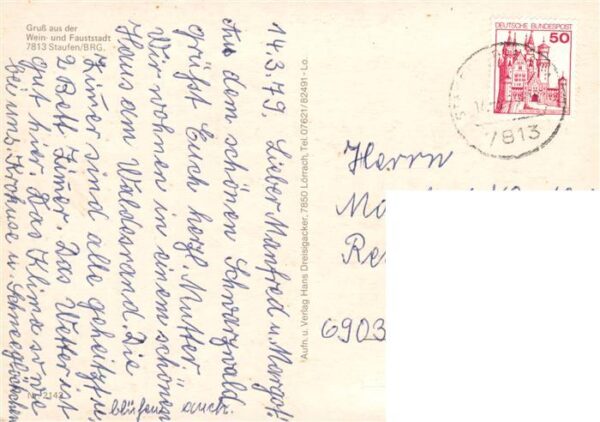 Gruß aus der
Wein- und Fauststadt
7813 Staufen/BRG.
14.3.79. Lieber Manfred u. Margot!
Aus dem schönen Schwarzwald
grüßt Euch herzl. Mutter.
Wir wohnen in einem schönen
Haus am Waldesrand. Die
Zimer sind alle geheitzt u.
2 Bett Zimer. Das Wetter ist
gut hier. Das Klima w. wie
bei uns. Krokuse u. Schneeglöckchen
blühen auch.
Nr. 2142
Aufn. u. Verlag Hans Dreisigacker, 7850 Lörrach, Tel. 07621/82491 - Lo.
DEUTSCHE BUNDESPOST
50
7813
Herrn
6903